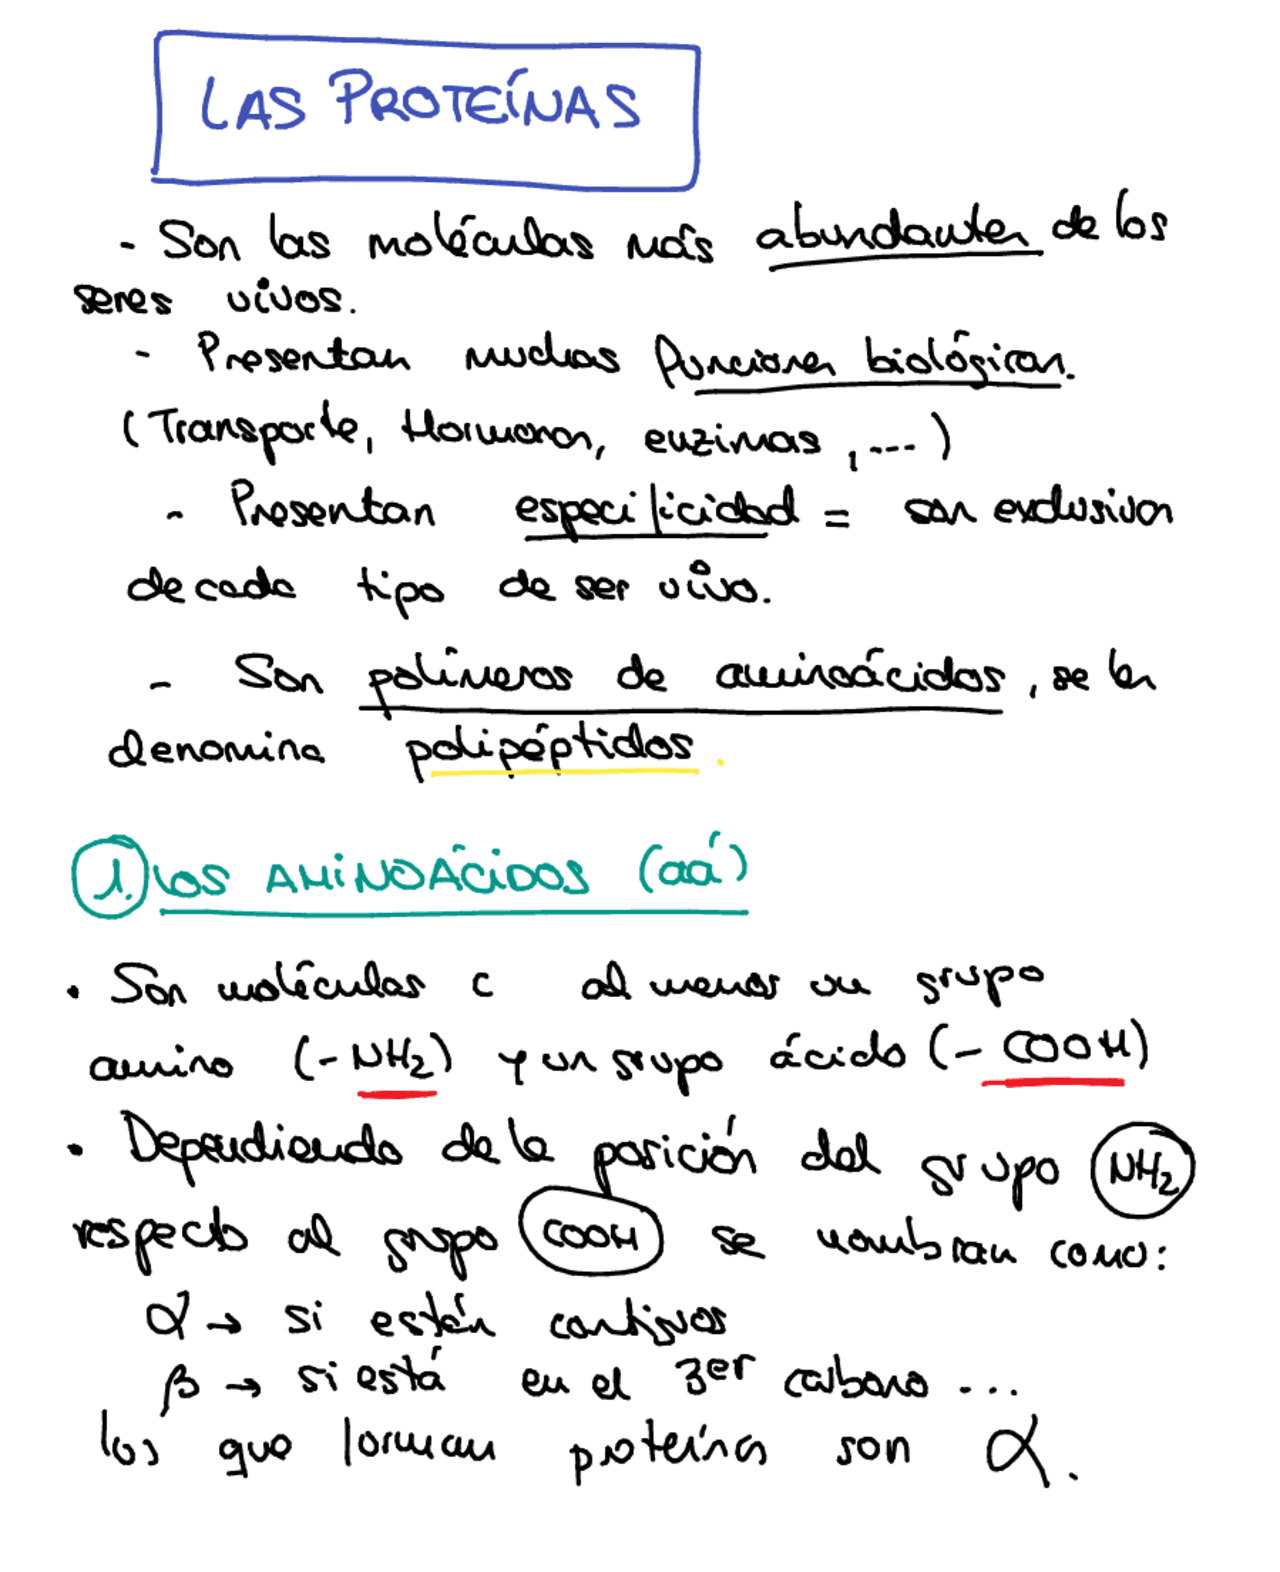 LAS PROTEÍNAS
- Son las moléculas más abundantes de los
seres vivos.
- Presentan muchas funciones biológicas.
(Transporte, Hormonas, enzimas, ...)
- Presentan especificidad = son exclusivas
de cada tipo de ser vivo.
- Son polímeros de aminoácidos, se les
denomina polipéptidos.
1. LOS AMINOÁCIDOS (aá)
• Son moléculas c al menos un grupo
amino (-NH2) y un grupo ácido (-COOH)
• Dependiendo de la posición del grupo NH2
respecto al grupo COOH se nombran como:
α → si están contiguos
β → si está en el 3er carbono ...
los que forman proteínas son α.